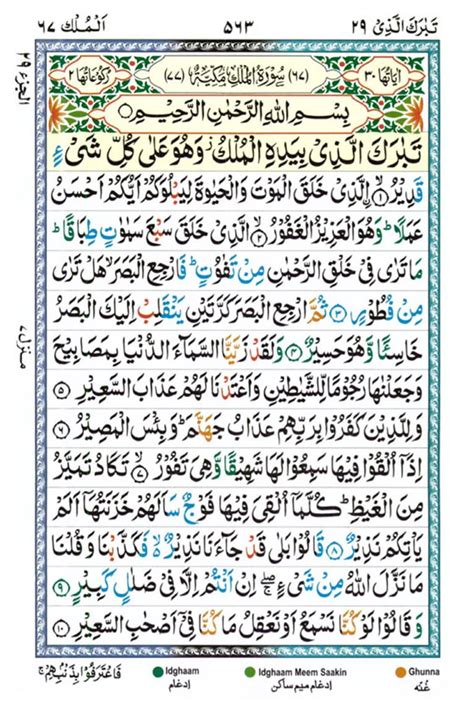 اَلْمُلْك ٦٧ ٥٦٣ تَبٰرَكَ الَّذِیْ ٢٩
اٰیَاتُهَا ٣٠ (٦٧) سُوْرَةُ الْمُلْكِ مَكِّیَّةٌ (٧٧) رُكُوْعَاتُهَا ٢
بِسْمِ اللّٰهِ الرَّحْمٰنِ الرَّحِیْمِ
تَبٰرَكَ الَّذِیْ بِیَدِهِ الْمُلْكُ ز وَهُوَ عَلٰی كُلِّ شَیْءٍ
قَدِیْرُ ۙ ١ اِۨلَّذِیْ خَلَقَ الْمَوْتَ وَالْحَیٰوةَ لِیَبْلُوَكُمْ اَیُّكُمْ اَحْسَنُ
عَمَلًا ؕ وَهُوَ الْعَزِیْزُ الْغَفُوْرُ ۙ ٢ الَّذِیْ خَلَقَ سَبْعَ سَمٰوٰتٍ طِبَاقًا ؕ
مَا تَرٰی فِیْ خَلْقِ الرَّحْمٰنِ مِنْ تَفٰوُتٍ ؕ فَارْجِعِ الْبَصَرَ ۙ هَلْ تَرٰی
مِنْ فُطُوْرٍ ٣ ثُمَّ ارْجِعِ الْبَصَرَ كَرَّتَیْنِ یَنْقَلِبْ اِلَیْكَ الْبَصَرُ
خَاسِئًا وَّهُوَ حَسِیْرٌ ٤ وَلَقَدْ زَیَّنَّا السَّمَآءَ الدُّنْیَا بِمَصَابِیْحَ
وَجَعَلْنٰهَا رُجُوْمًا لِّلشَّیٰطِیْنِ وَاَعْتَدْنَا لَهُمْ عَذَابَ السَّعِیْرِ ٥
وَلِلَّذِیْنَ كَفَرُوْا بِرَبِّهِمْ عَذَابُ جَهَنَّمَ ؕ وَبِئْسَ الْمَصِیْرُ ٦
اِذَاۤ اُلْقُوْا فِیْهَا سَمِعُوْا لَهَا شَهِیْقًا وَّهِیَ تَفُوْرُ ۙ ٧ تَكَادُ تَمَیَّزُ
مِنَ الْغَیْظِ ؕ كُلَّمَاۤ اُلْقِیَ فِیْهَا فَوْجٌ سَاَلَهُمْ خَزَنَتُهَاۤ اَلَمْ
یَاْتِكُمْ نَذِیْرٌ ٨ قَالُوْا بَلٰی قَدْ جَآءَنَا نَذِیْرٌ ۙ فَكَذَّبْنَا وَقُلْنَا
مَا نَزَّلَ اللّٰهُ مِنْ شَیْءٍ ۖۚ اِنْ اَنْتُمْ اِلَّا فِیْ ضَلٰلٍ كَبِیْرٍ ٩
وَقَالُوْا لَوْ كُنَّا نَسْمَعُ اَوْ نَعْقِلُ مَا كُنَّا فِیْۤ اَصْحٰبِ السَّعِیْرِ ١٠
الجزء ٢٩
منزل ٧
فَاعْتَرَفُوْا بِذَنْۢبِهِمْ ۚ
Idghaam
اِدغام
Idghaam Meem Saakin
اِدغام میم ساکن
Ghunna
غُنّه